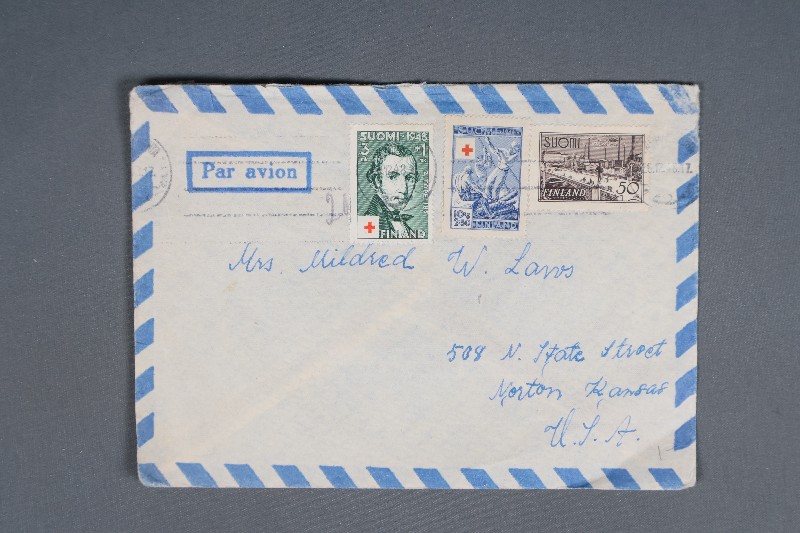 Par avion
SUOMI-1948
3 +1
FINLAND
SUOMI
10+
2:50
FINLAND
SUOMI
FINLAND
50
Mrs. Mildred W. Laws
508 N. State Street
Norton Kansas
U.S.A.